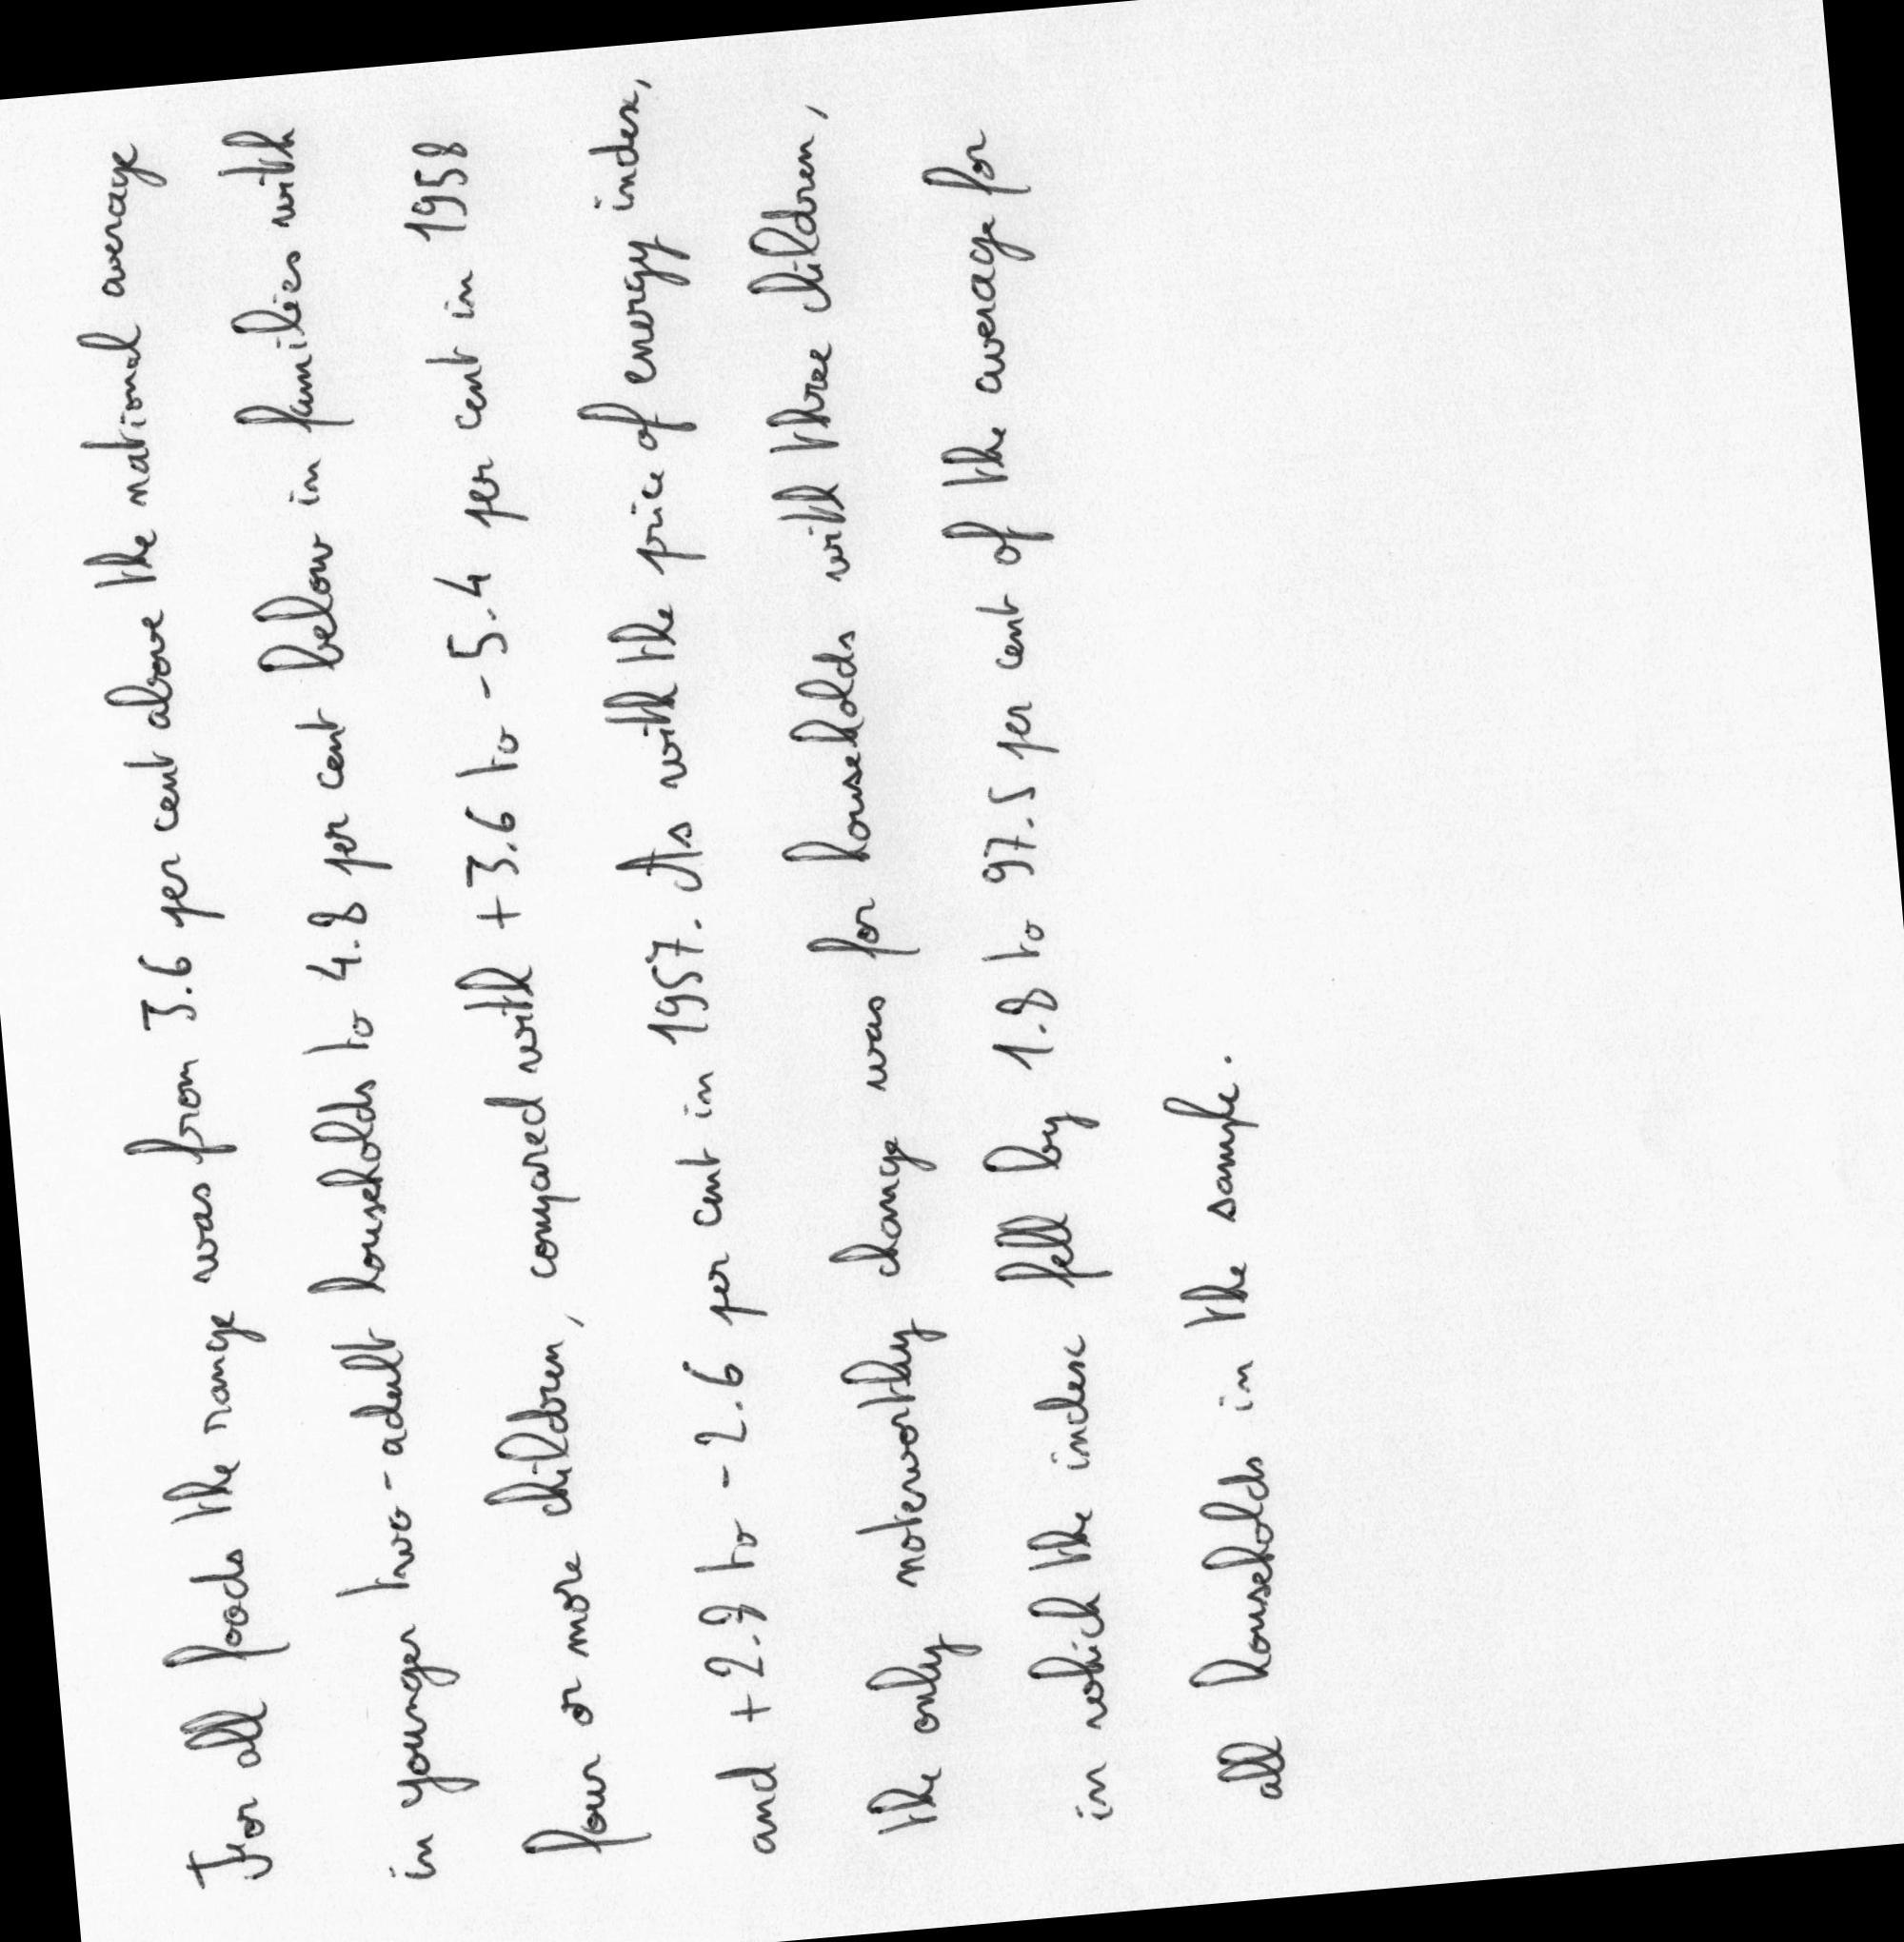 For all foods the range was from 3.6 per cent above the national average
in younger two-adult households to 4.8 per cent below in families with
four or more children, compared with +3.6 to -5.4 per cent in 1958
and +2.9 to -2.6 per cent in 1957. As with the price of energy index,
the only noteworthy change was for households with three children,
in which the index fell by 1.8 to 97.5 per cent of the average for
all households in the sample.